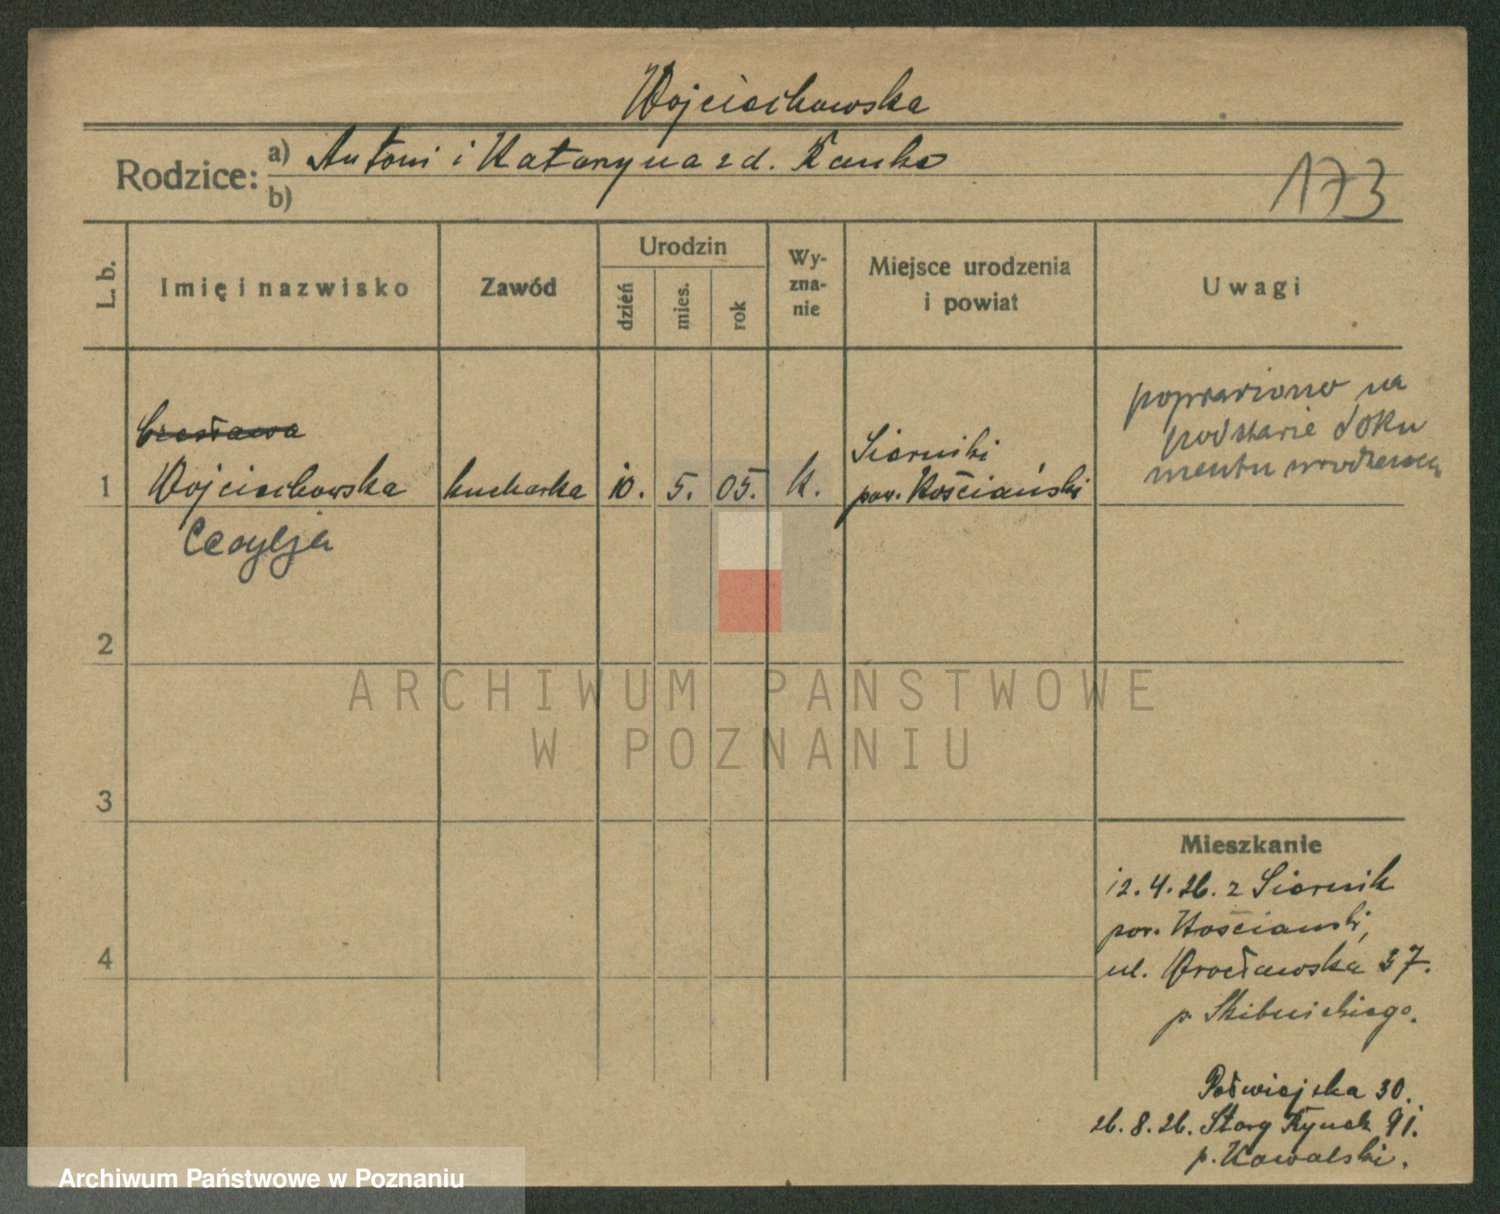 Wojciechowska
Rodzice: a) Antoni i Katarzyna z d. Kanke
b)
173
L. b.
Imię i nazwisko
Zawód
Urodzin
dzień
mies.
rok
Wy-
zna-
nie
Miejsce urodzenia
i powiat
Uwagi
Czesława
1 Wojciechowska kucharka 10. 5. 05. k.
Siernicki
pow. Kościański
Cecylja
poprawiono na
podstawie doku
mentu urodzenia
2
3
4
Mieszkanie
12.4.26. z Siernik
pow. Kościański,
ul. Wrocławska 37.
p. Skibnickiego.
Półwiejska 30.
26.8.26. Stary Rynek 91.
p. Kowalski.
ARCHIWUM PAŃSTWOWE
W POZNANIU
Archiwum Państwowe w Poznaniu